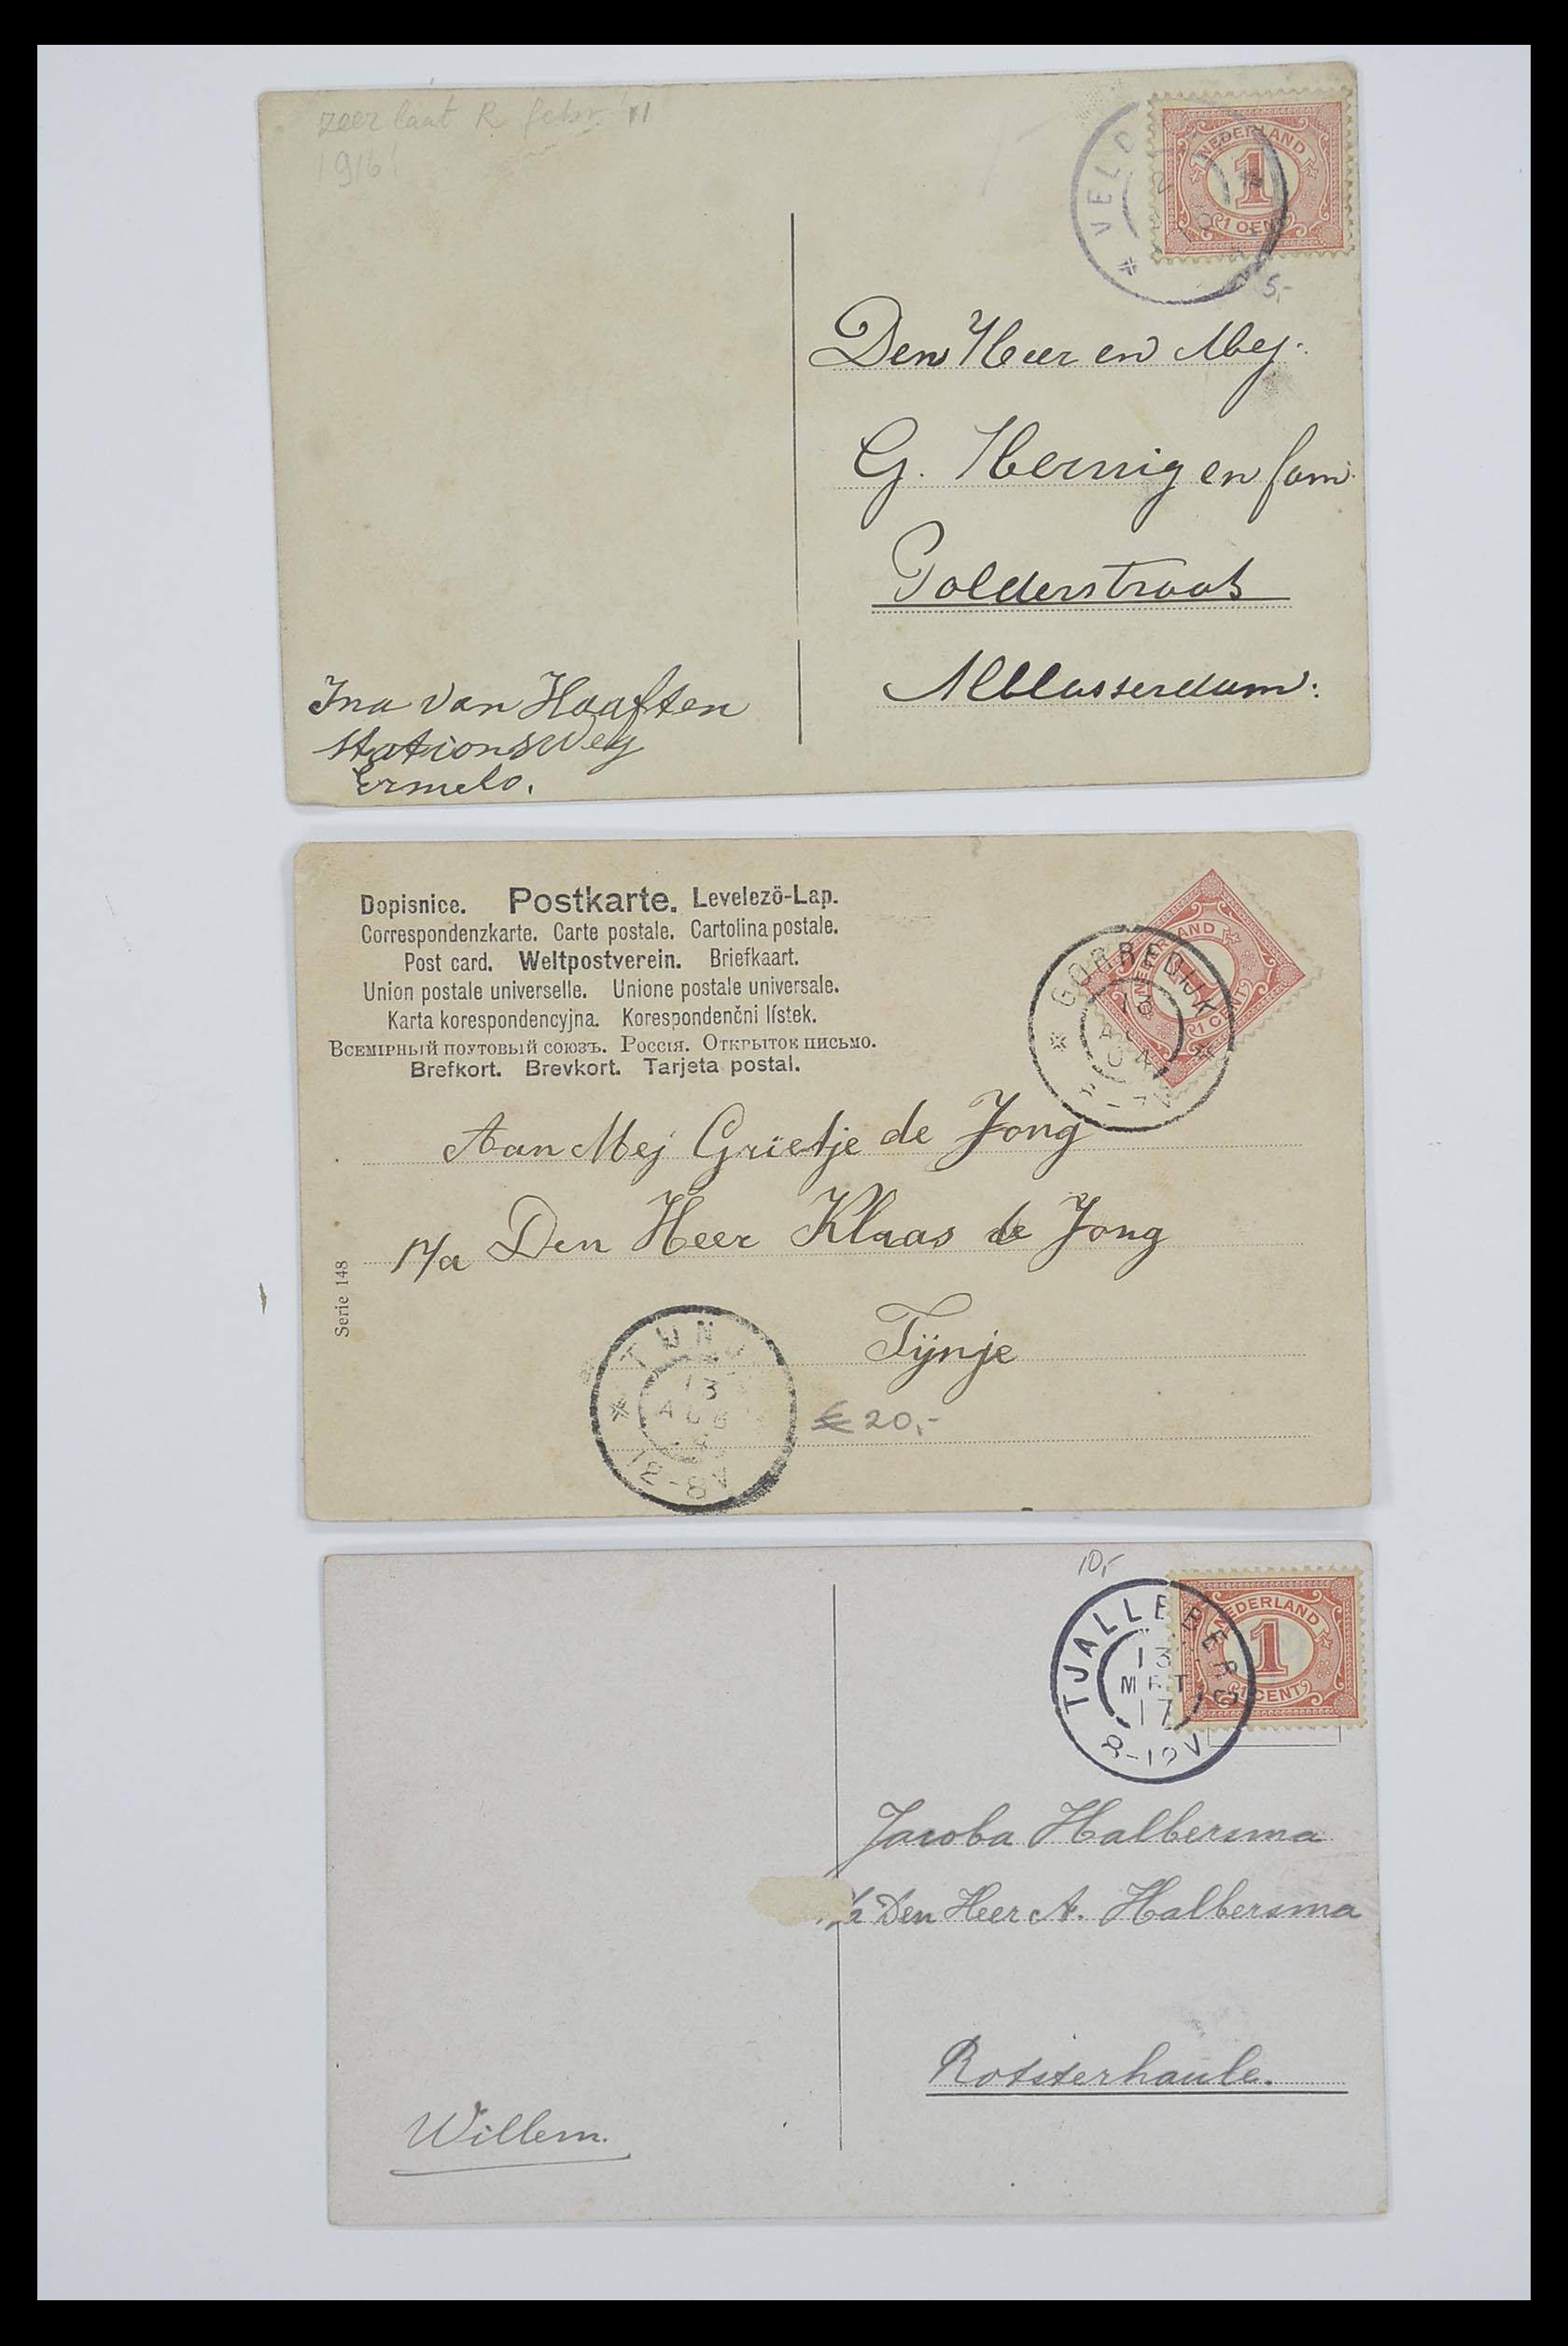 zeer laat R febr. '11
1916!
VELD
NEDERLAND
1
1 CENT
5,-
Den Heer en Mej.
G. Hernig en fam.
Polderstraat
Alblasserdam.
Ina van Haaften
Stationsweg
Ermelo.
Dopisnice. Postkarte. Levelezö-Lap.
Correspondenzkarte. Carte postale. Cartolina postale.
Post card. Weltpostverein. Briefkaart.
Union postale universelle. Unione postale universale.
Karta korespondencyjna. Korespondenčni lístek.
Всемірный поутовый союзъ. Россія. Открытое письмо.
Brefkort. Brevkort. Tarjeta postal.
NEDERLAND
1 CENT
GORREDIJK
13
Aan Mej Grietje de Jong
p/a Den Heer Klaas de Jong
Tijnje
Serie 148
TIJNJ
13
AUG
12-8V
€ 20,-
10,-
NEDERLAND
1
1 CENT
TJALLEBERG
13
MRT
17
8-12V
Jacoba Halbersma
p/a Den Heer A. Halbersma
Rotsterhaule.
Willem.